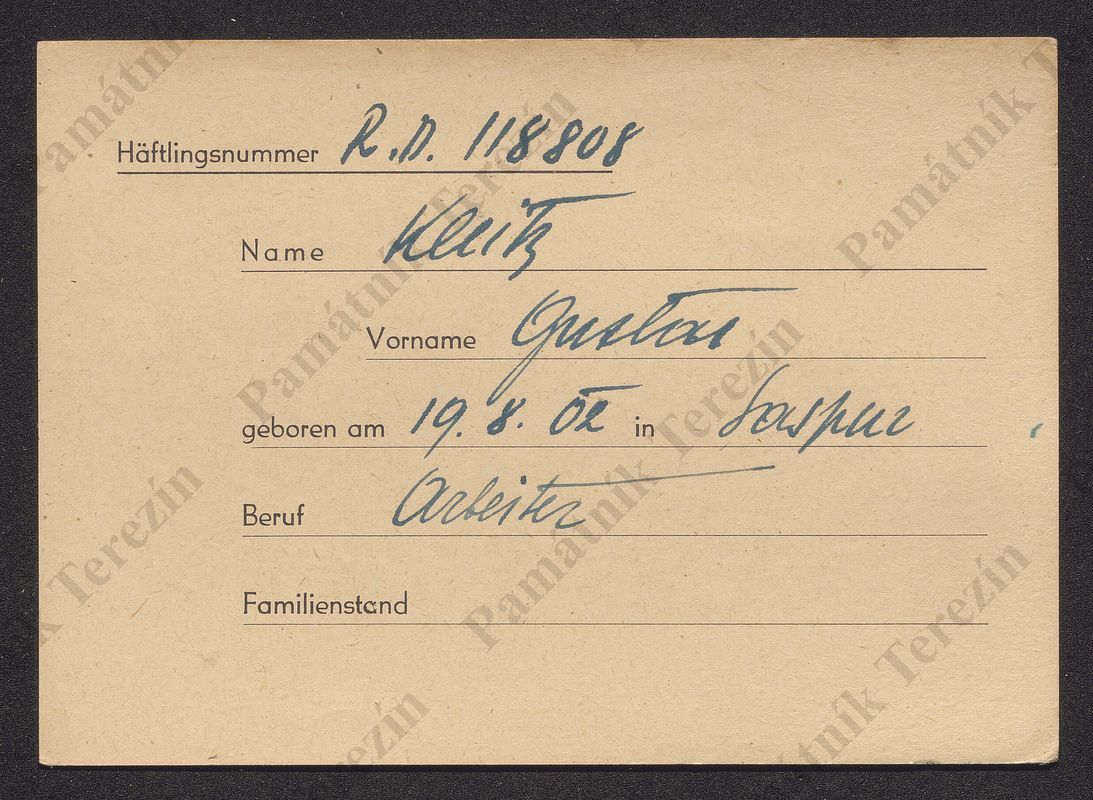 Häftlingsnummer R.D. 118808
Name Kleitz
Vorname Gustav
geboren am 19. 8. 02 in Saspur
Beruf Arbeiter
Familienstand
Památník Terezín